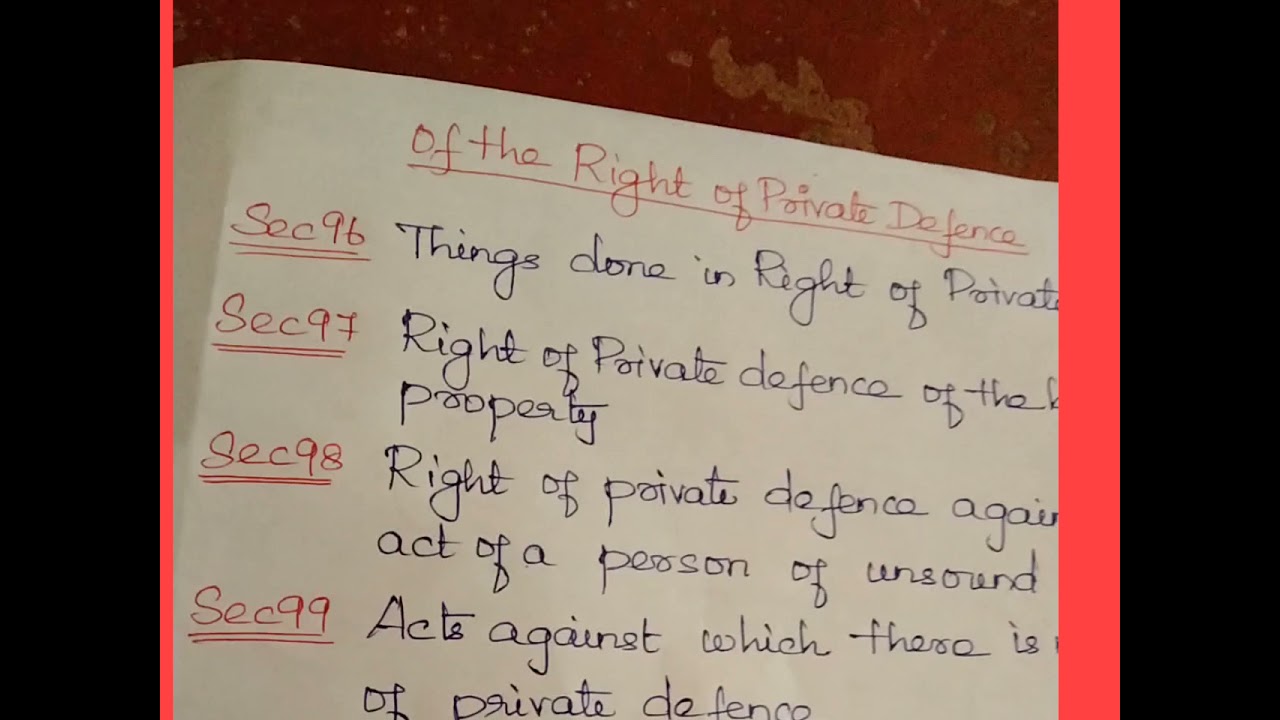 Of the Right of Private Defence
Sec96 Things done in Right of Private
Sec97 Right of Private defence of the
property
Sec98 Right of private defence
act of a person of unsound
Sec99 Acts against which there is
of private defence